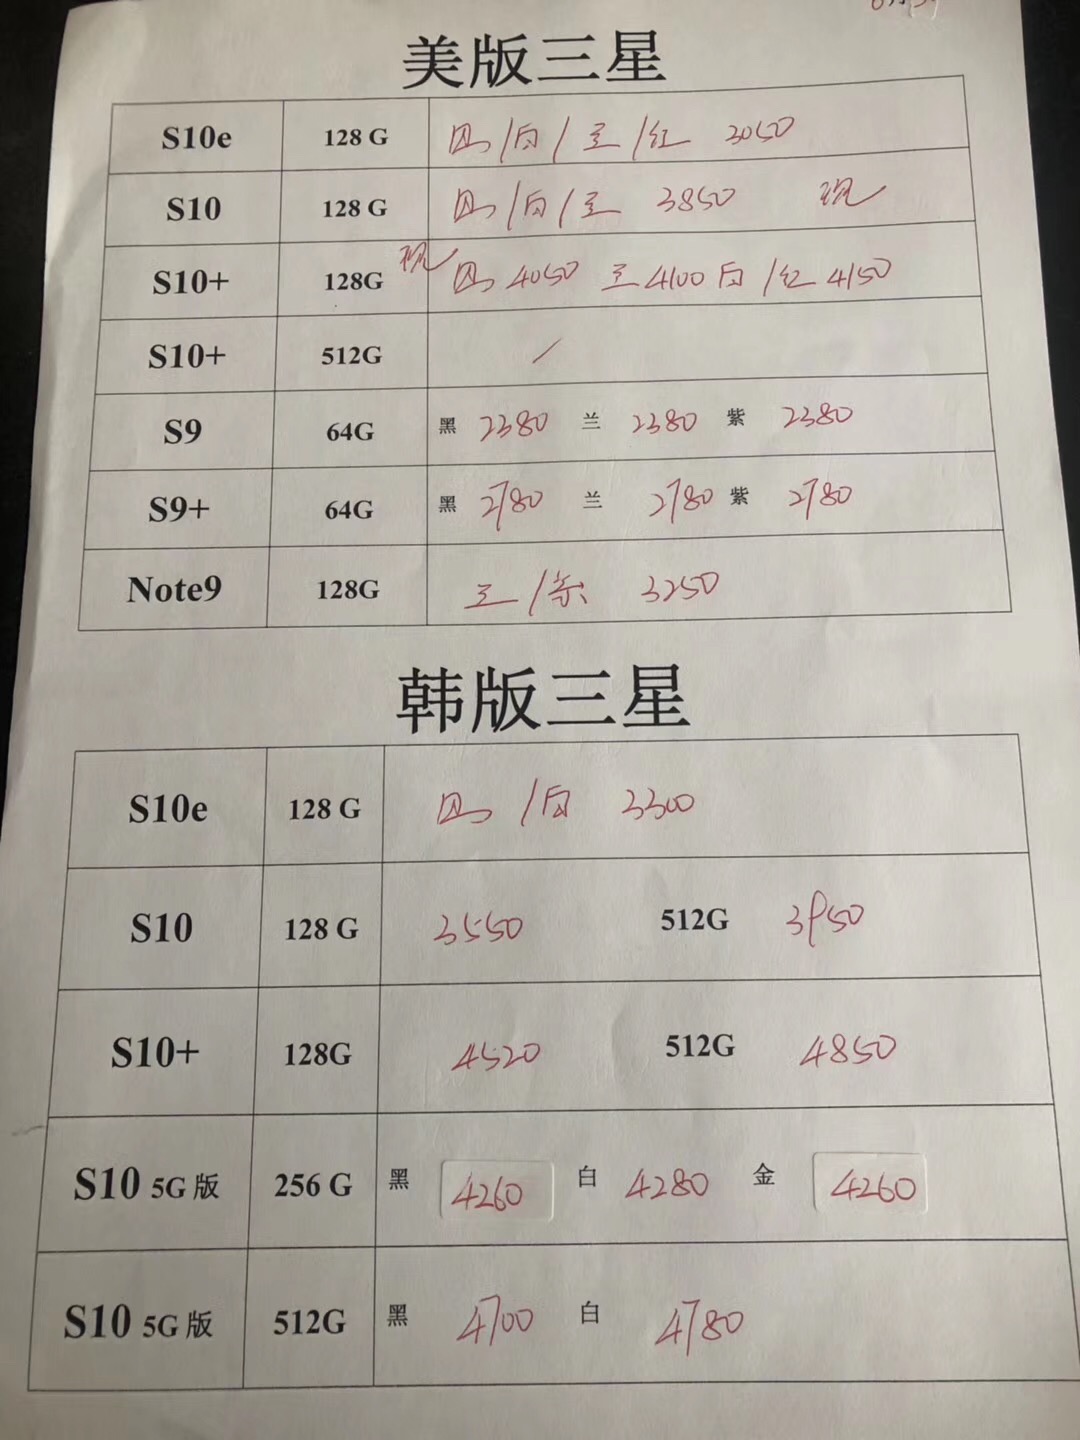 美版三星
S10e 128 G 四/白/兰/红 3050
S10 128 G 四/白/兰 3850 现
S10+ 128G 现 四 4050 兰 4100 白/红 4150
S10+ 512G /
S9 64G 黑 2380 兰 2380 紫 2380
S9+ 64G 黑 2780 兰 2780 紫 2780
Note9 128G 兰/紫 3250
韩版三星
S10e 128 G 四/白 3300
S10 128 G 3550 512G 3950
S10+ 128G 4520 512G 4850
S10 5G 版 256 G 黑 4260 白 4280 金 4260
S10 5G 版 512G 黑 4700 白 4780